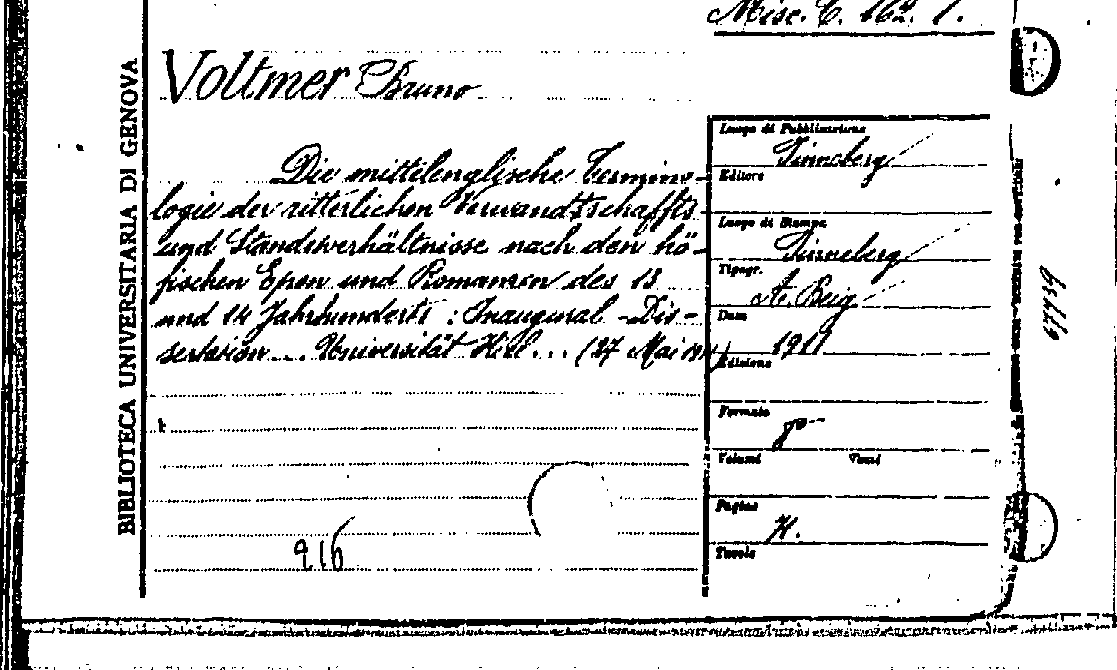 Misc. C. 162. 1.
BIBLIOTECA UNIVERSITARIA DI GENOVA
Voltmer Bruno
Die mittelenglische Termino-
logie der ritterlichen Verwandtschaffts
und Standesverhältnisse nach den hö-
fischen Epen und Romanzen des 13
und 14 Jahrhunderts : Inaugural-Dis-
sertation ... Universität Kiel ... (27 Mai 1911)
216
Luogo di Pubblicazione
Pinneberg
Editore
Luogo di Stampa
Pinneberg
Tipogr.
A. Beig
Data
1911
Edizione
Formato
8°
Volumi Tomi
Pagine
Tavole
67739